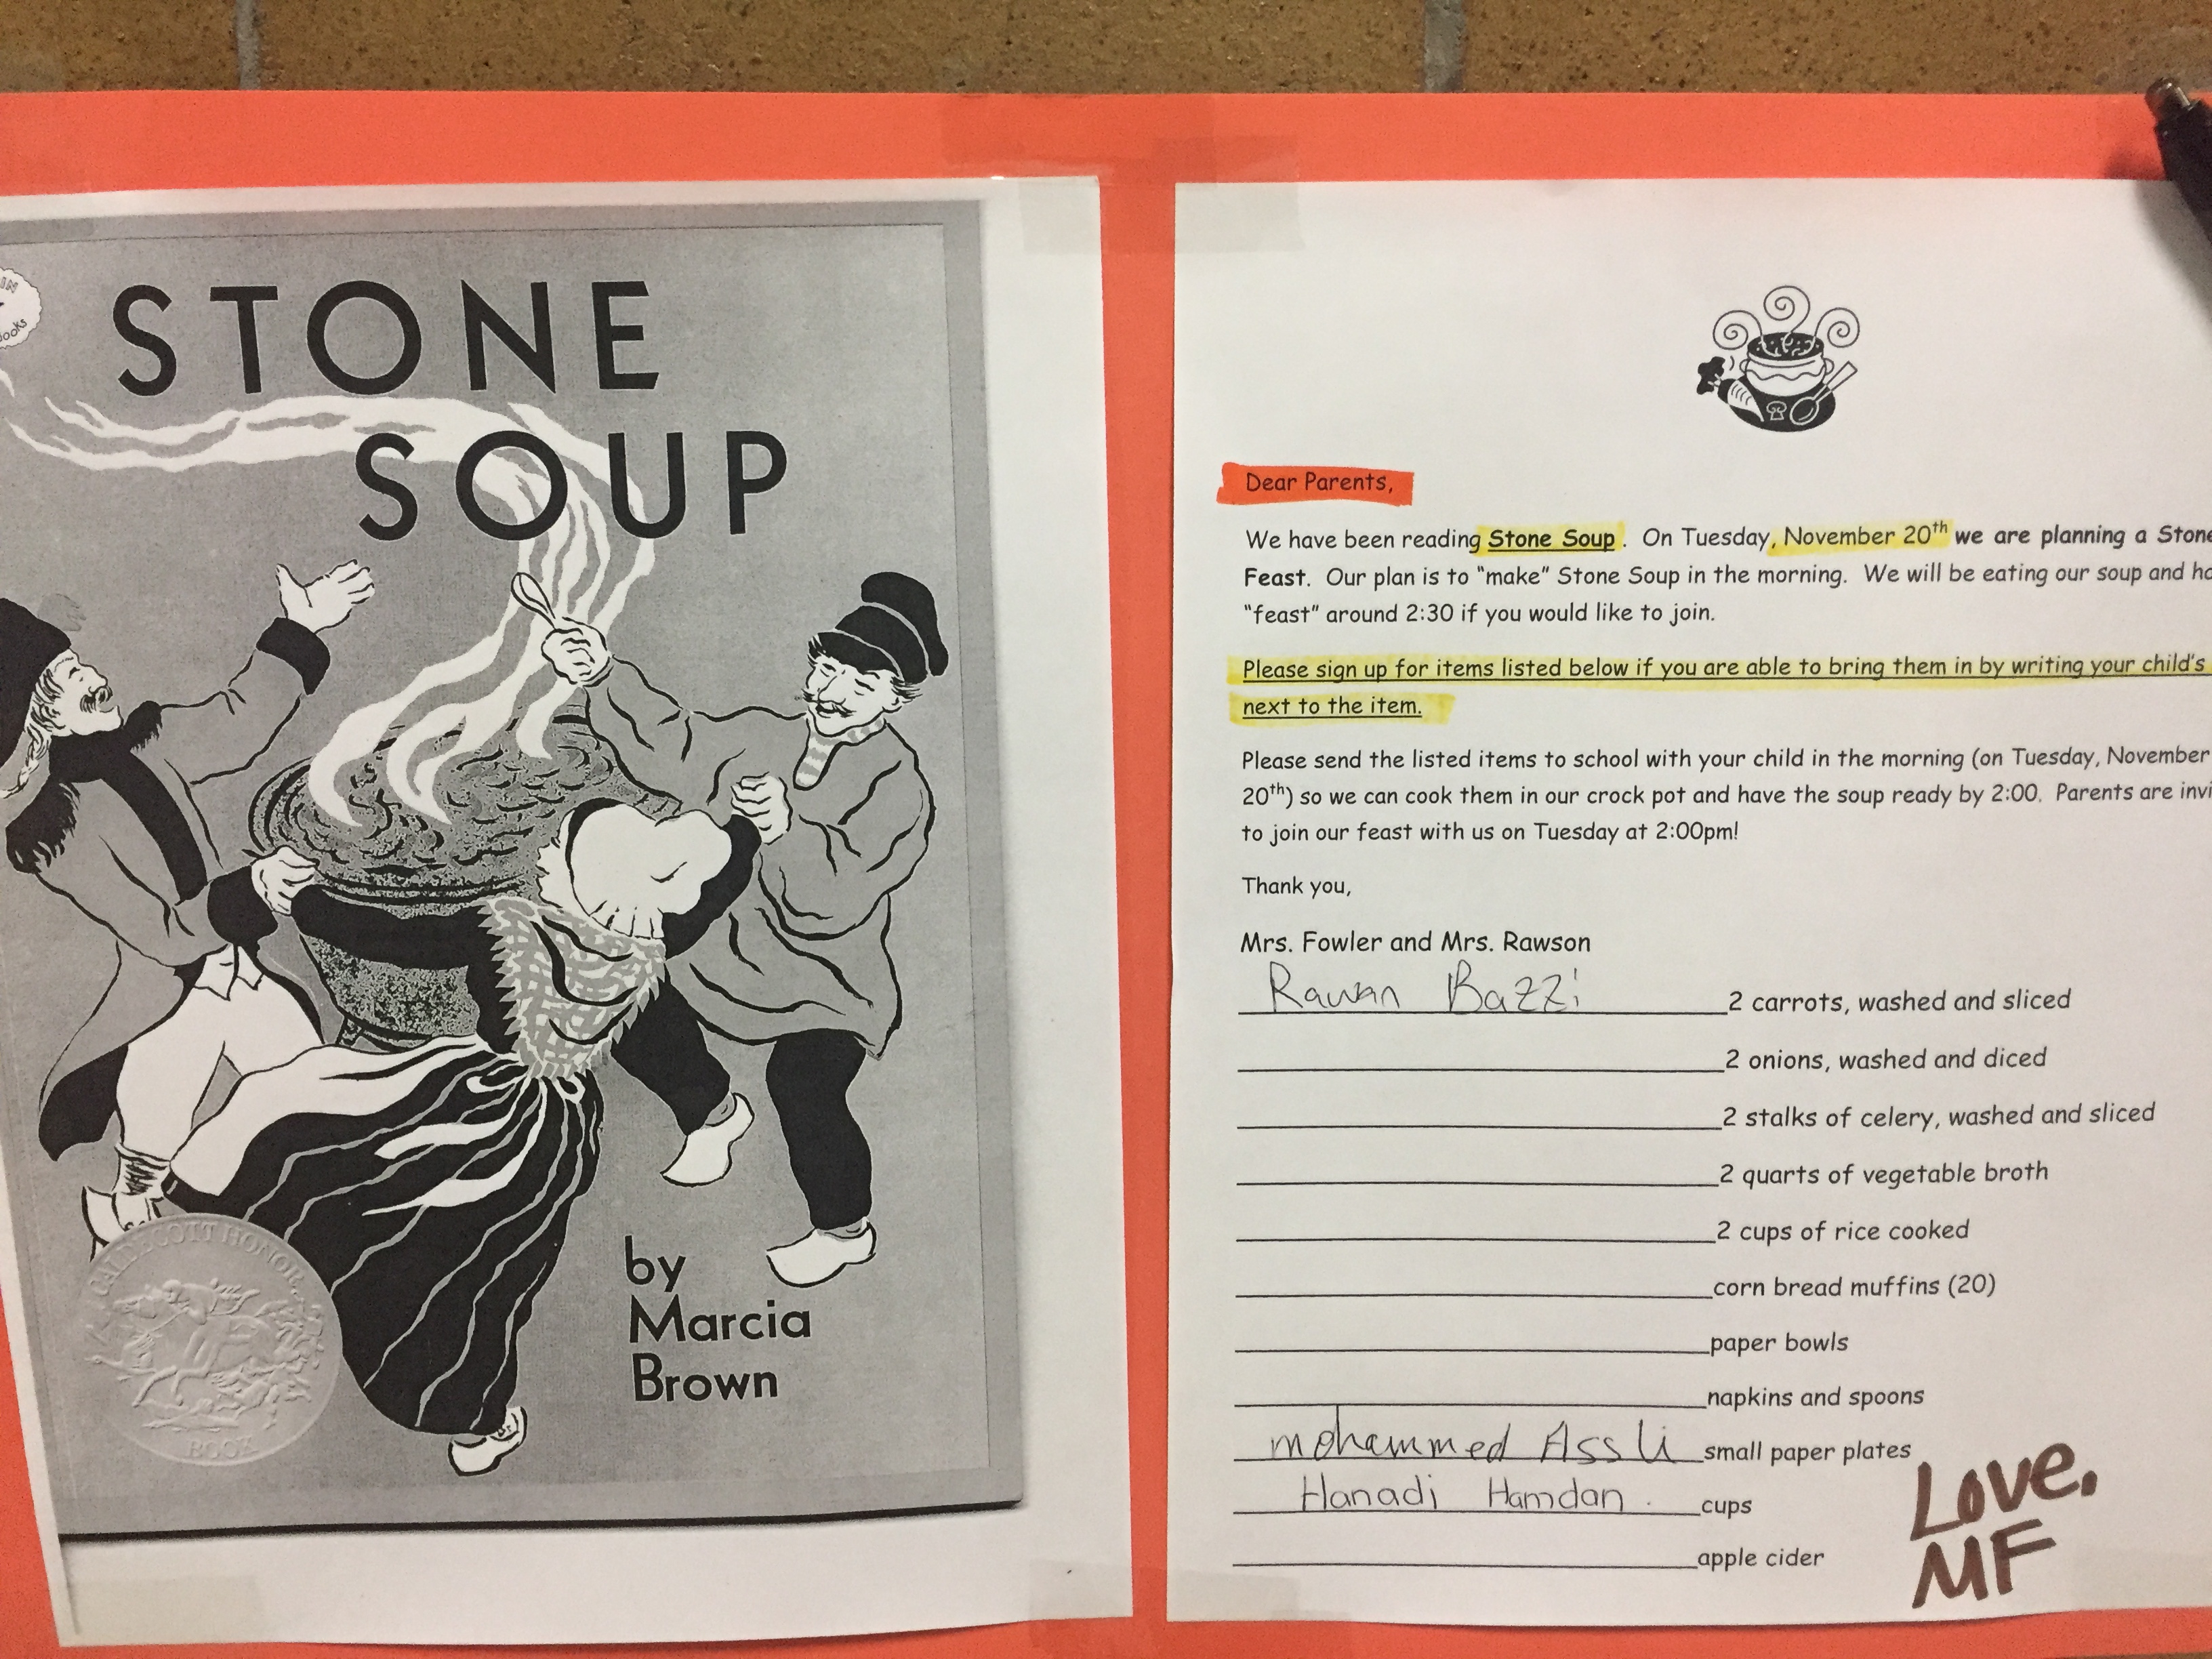 STONE
SOUP
by
Marcia
Brown
CALDECOTT HONOR
BOOK
Dear Parents,
We have been reading Stone Soup. On Tuesday, November 20th we are planning a Stone
Feast. Our plan is to "make" Stone Soup in the morning. We will be eating our soup and
"feast" around 2:30 if you would like to join.
Please sign up for items listed below if you are able to bring them in by writing your child's
next to the item.
Please send the listed items to school with your child in the morning (on Tuesday, November
20th) so we can cook them in our crock pot and have the soup ready by 2:00. Parents are
to join our feast with us on Tuesday at 2:00pm!
Thank you,
Mrs. Fowler and Mrs. Rawson
Rawan Bazzi 2 carrots, washed and sliced
2 onions, washed and diced
2 stalks of celery, washed and sliced
2 quarts of vegetable broth
2 cups of rice cooked
corn bread muffins (20)
paper bowls
napkins and spoons
mohammed Assli small paper plates
Hanadi Hamdan. cups
apple cider
Love.
MF